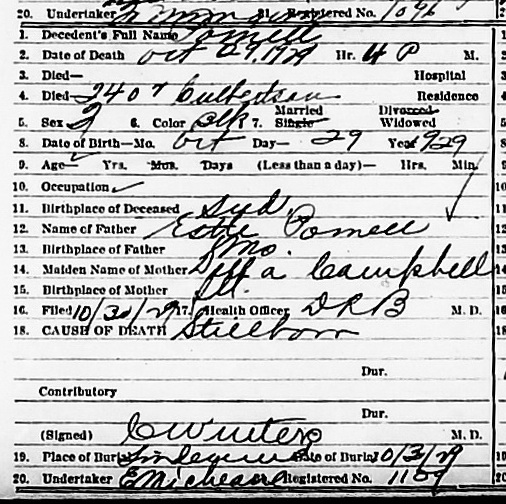 20. Undertaker 21. Registered No. 1096
1. Decedent's Full Name Pomell
2. Date of Death Oct 29, 1929 Hr. 4 P M.
3. Died— Hospital
4. Died— 2407 Culbertson Residence
5. Sex 6. Color Blk 7. Married Single Divorced Widowed
8. Date of Birth—Mo. Oct Day— 29 Year 929
9. Age— Yrs. Mos. Days (Less than a day)— Hrs. Min.
10. Occupation
11. Birthplace of Deceased Ind.
12. Name of Father Pomell
13. Birthplace of Father Mo.
14. Maiden Name of Mother Campbell
15. Birthplace of Mother Ill.
16. Filed 10/30/29 17. Health Officer D R B M. D.
18. CAUSE OF DEATH Stillborn
Dur.
Contributory
Dur.
(Signed) C Winters M. D.
19. Place of Burial Date of Burial 10/31/29
20. Undertaker Registered No. 1109